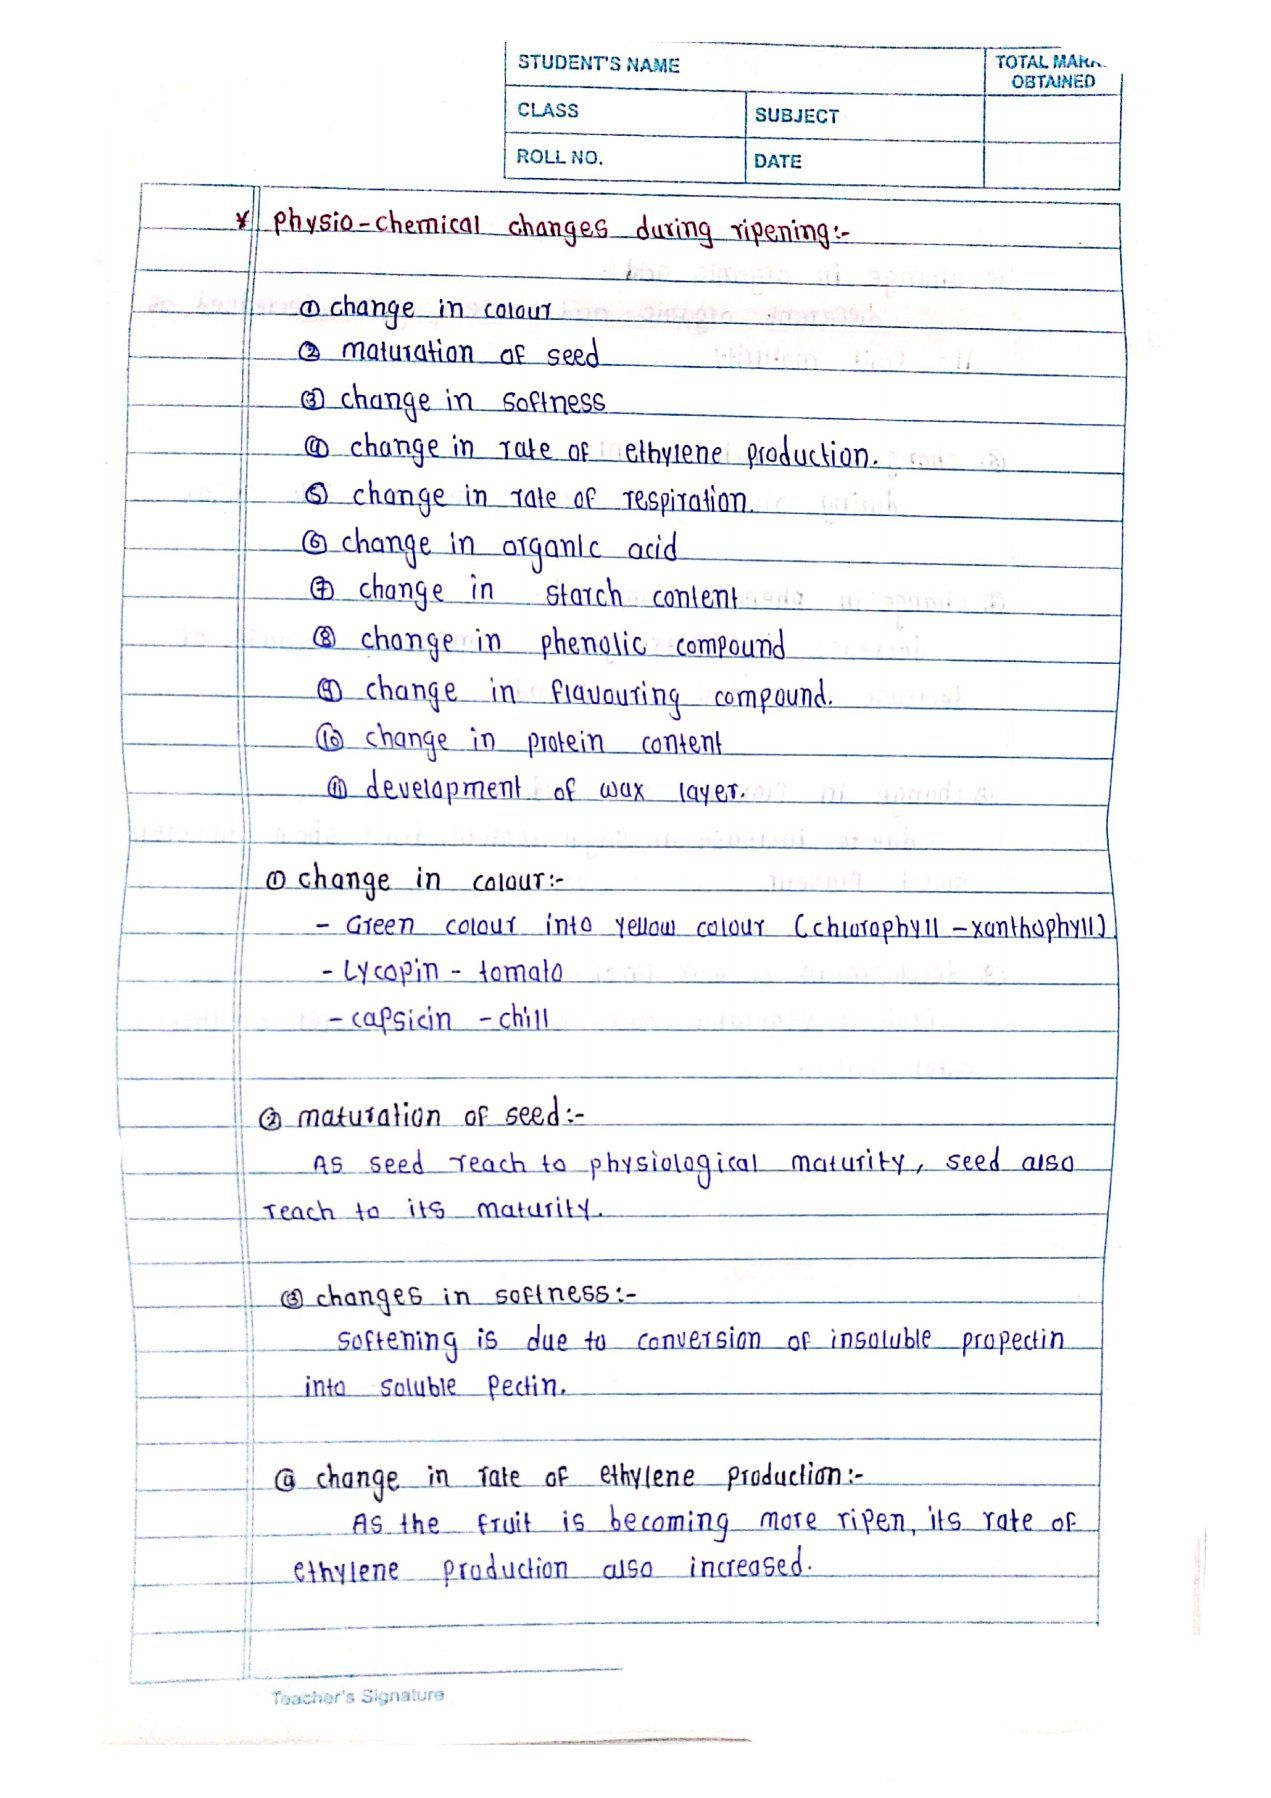 STUDENT'S NAME
TOTAL MARK
OBTAINED
CLASS
SUBJECT
ROLL NO.
DATE
* physio-chemical changes during ripening:-
① change in colour
② maturation of seed
③ change in softness
④ change in rate of ethylene production.
⑤ change in rate of respiration.
⑥ change in organic acid
⑦ change in starch content
⑧ change in phenolic compound
⑨ change in flavouring compound.
⑩ change in protein content
⑪ development of wax layer.
① change in colour:-
- Green colour into yellow colour (chlorophyll - xanthophyll)
- Lycopin - tomato
- capsicin - chill
② maturation of seed:-
As seed reach to physiological maturity, seed also
reach to its maturity.
③ changes in softness:-
softening is due to conversion of insoluble propectin
into soluble Pectin.
④ change in rate of ethylene production:-
As the fruit is becoming more ripen, its rate of
ethylene production also increased.
Teacher's Signature